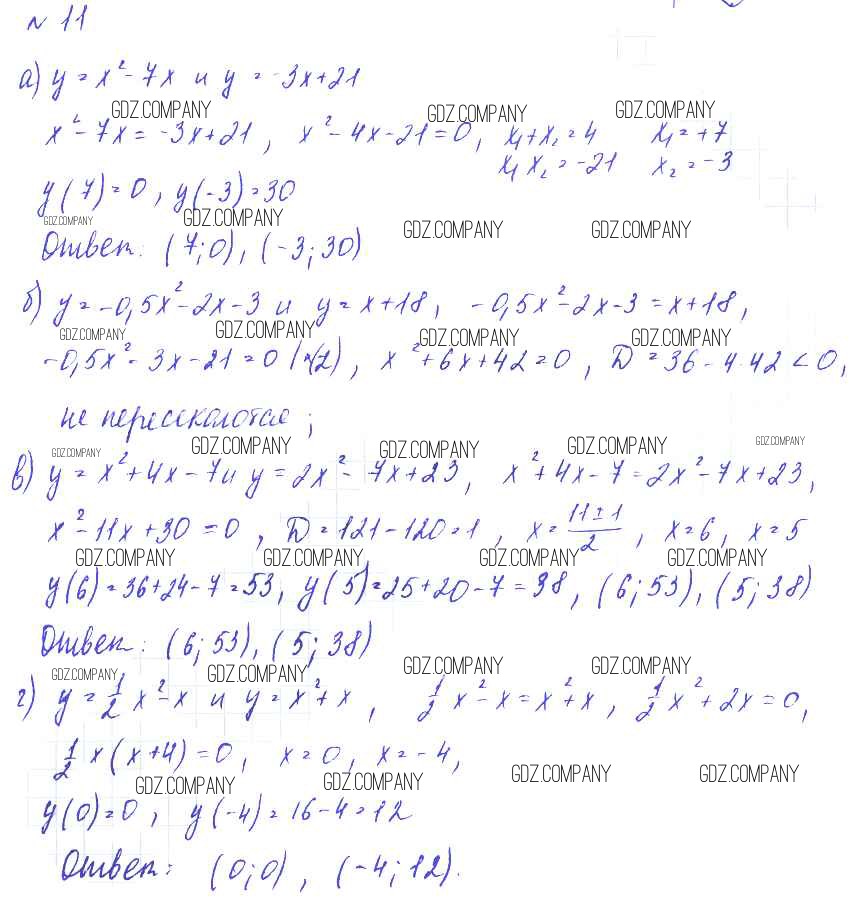 № 11
а) y = x² - 7x и y = -3x+21
GDZ.COMPANY GDZ.COMPANY GDZ.COMPANY
x² - 7x = -3x+21, x² - 4x - 21 = 0, x₁+x₂ = 4 x₁ = +7
x₁ x₂ = -21 x₂ = -3
y(7) = 0, y(-3) = 30
GDZ.COMPANY GDZ.COMPANY GDZ.COMPANY GDZ.COMPANY
Ответ: (7;0), (-3;30)
б) y = -0,5x² - 2x - 3 и y = x+18, -0,5x² - 2x - 3 = x+18,
GDZ.COMPANY GDZ.COMPANY GDZ.COMPANY GDZ.COMPANY
-0,5x² - 3x - 21 = 0 |·(2), x² + 6x + 42 = 0, D = 36 - 4·42 < 0,
не пересекаются;
GDZ.COMPANY GDZ.COMPANY GDZ.COMPANY GDZ.COMPANY GDZ.COMPANY
в) y = x² + 4x - 7 и y = 2x² - 7x + 23, x² + 4x - 7 = 2x² - 7x + 23,
x² - 11x + 30 = 0, D = 121 - 120 = 1, x = (11 ± 1)/2, x = 6, x = 5
GDZ.COMPANY GDZ.COMPANY GDZ.COMPANY GDZ.COMPANY
y(6) = 36+24-7 = 53, y(5) = 25+20-7 = 38, (6;53), (5;38)
Ответ: (6;53), (5;38)
GDZ.COMPANY GDZ.COMPANY GDZ.COMPANY GDZ.COMPANY
г) y = 1/2 x² - x и y = x² + x, 1/2 x² - x = x² + x, 1/2 x² + 2x = 0,
1/2 x(x+4) = 0, x = 0, x = -4,
GDZ.COMPANY GDZ.COMPANY GDZ.COMPANY GDZ.COMPANY
y(0) = 0, y(-4) = 16 - 4 = 12
Ответ: (0;0), (-4;12).